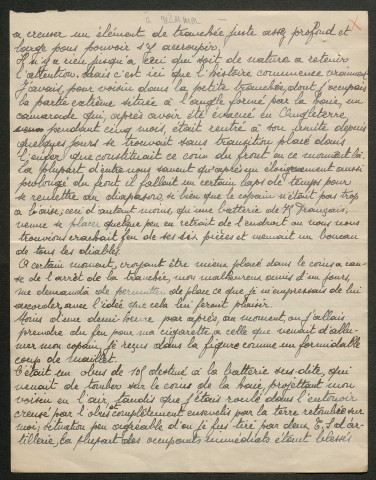 à creuser un élément de tranchée juste assez profond et
large pour pouvoir s'y accroupir.
Il n'y a rien jusqu'à ceci qui soit de nature à retenir
l'attention. Mais c'est ici que l'histoire commence vraiment
J'avais, pour voisin dans la petite tranchée, dont j'occupais
la partie extrême située à l'angle formé par la haie, un
camarade qui, après avoir été évacué en Angleterre
pendant cinq mois, était rentré à son unité depuis
quelques jours se trouvait sans transition placé dans
l'enfer que constituerait ce coin du front en ce moment là.
La plupart d'entre nous savent qu'après un éloignement aussi
prolongé du front il fallait un certain laps de temps pour
se remettre au diapason, si bien que le copain n'était pas trop
à l'aise; ceci d'autant moins, qu'une batterie de 75 Français,
venue se placer quelque peu en retrait de l'endroit où nous nous
trouvions crachait feu de ses six pièces et menait un boucan
de tous les diables.
A certain moment, croyant être mieux placé dans le coin à cau-
se de l'arrêt de la tranchée, mon malheureux amis d'un jours,
me demanda de permuter de place ce que je m'empressais de lui
accorder avec l'idée que cela lui ferait plaisir.
Moins d'une demi heure par après, au moment, où j'allais
prendre du feu pour ma cigarette à celle que venait d'allu-
mer mon copain, je reçus dans la figure comme un formidable
coup de maillet.
C'était un obus de 105 destiné à la batterie sus-dite, qui
venait de tomber sur le coin de la haie, projettant mon
voisin en l'air, tandis que j'étais roulé dans l'entonnoir
creusé par l'obus et complètement enseveli par la terre retombée sur
moi; situation peu agréable d'où je fus tiré par deux T.S d'ar-
tillerie, la plupart des occupants immédiats étant blessés